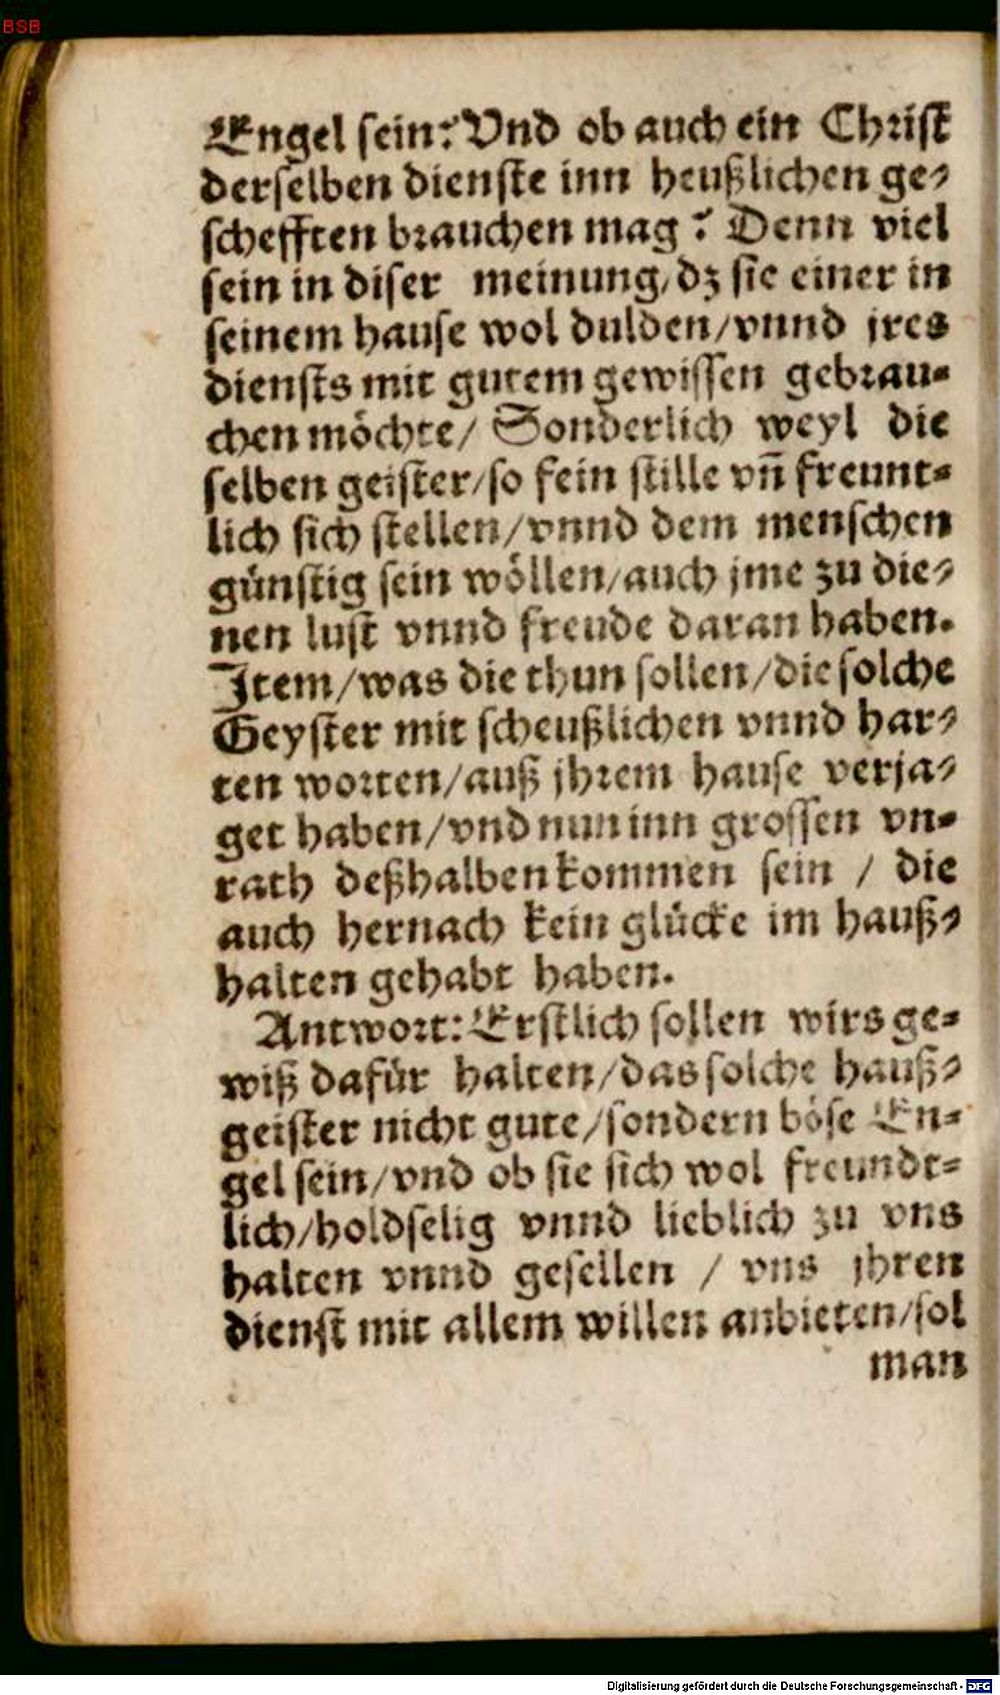 BSB
Engel sein? Vnd ob auch ein Christ
derselben dienste inn heußlichen ge-
schefften brauchen mag? Denn viel
sein in diser meinung, dz sie einer in
seinem hause wol dulden/vnnd jres
diensts mit gutem gewissen gebrau-
chen möchte/ Sonderlich weyl die
selben geister/so fein stille vñ freunt-
lich sich stellen/vnnd dem menschen
günstig sein wöllen/auch jme zu die-
nen lust vnnd freude daran haben.
Item/was die thun sollen/die solche
Geyster mit scheußlichen vnnd har-
ten worten/auß jhrem hause verja-
get haben/vnd nun inn grossen vn-
rath deßhalben kommen sein / die
auch hernach kein glücke im hauß-
halten gehabt haben.
Antwort: Erstlich sollen wirs ge-
wiß dafür halten/das solche hauß-
geister nicht gute/sondern böse En-
gel sein/vnd ob sie sich wol freundt-
lich/holdselig vnnd lieblich zu vns
halten vnnd gesellen / vns jhren
dienst mit allem willen anbieten/sol
man
Digitalisierung gefördert durch die Deutsche Forschungsgemeinschaft - DFG